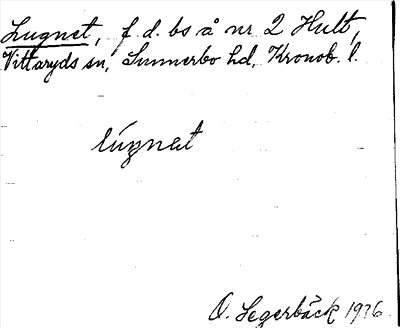 Lugnet, f. d. bs å nr 2 Hult,
Vittaryds sn, Sunnerbo hd, Kronob. l.
lúgnat
O. Segerbäck 1936